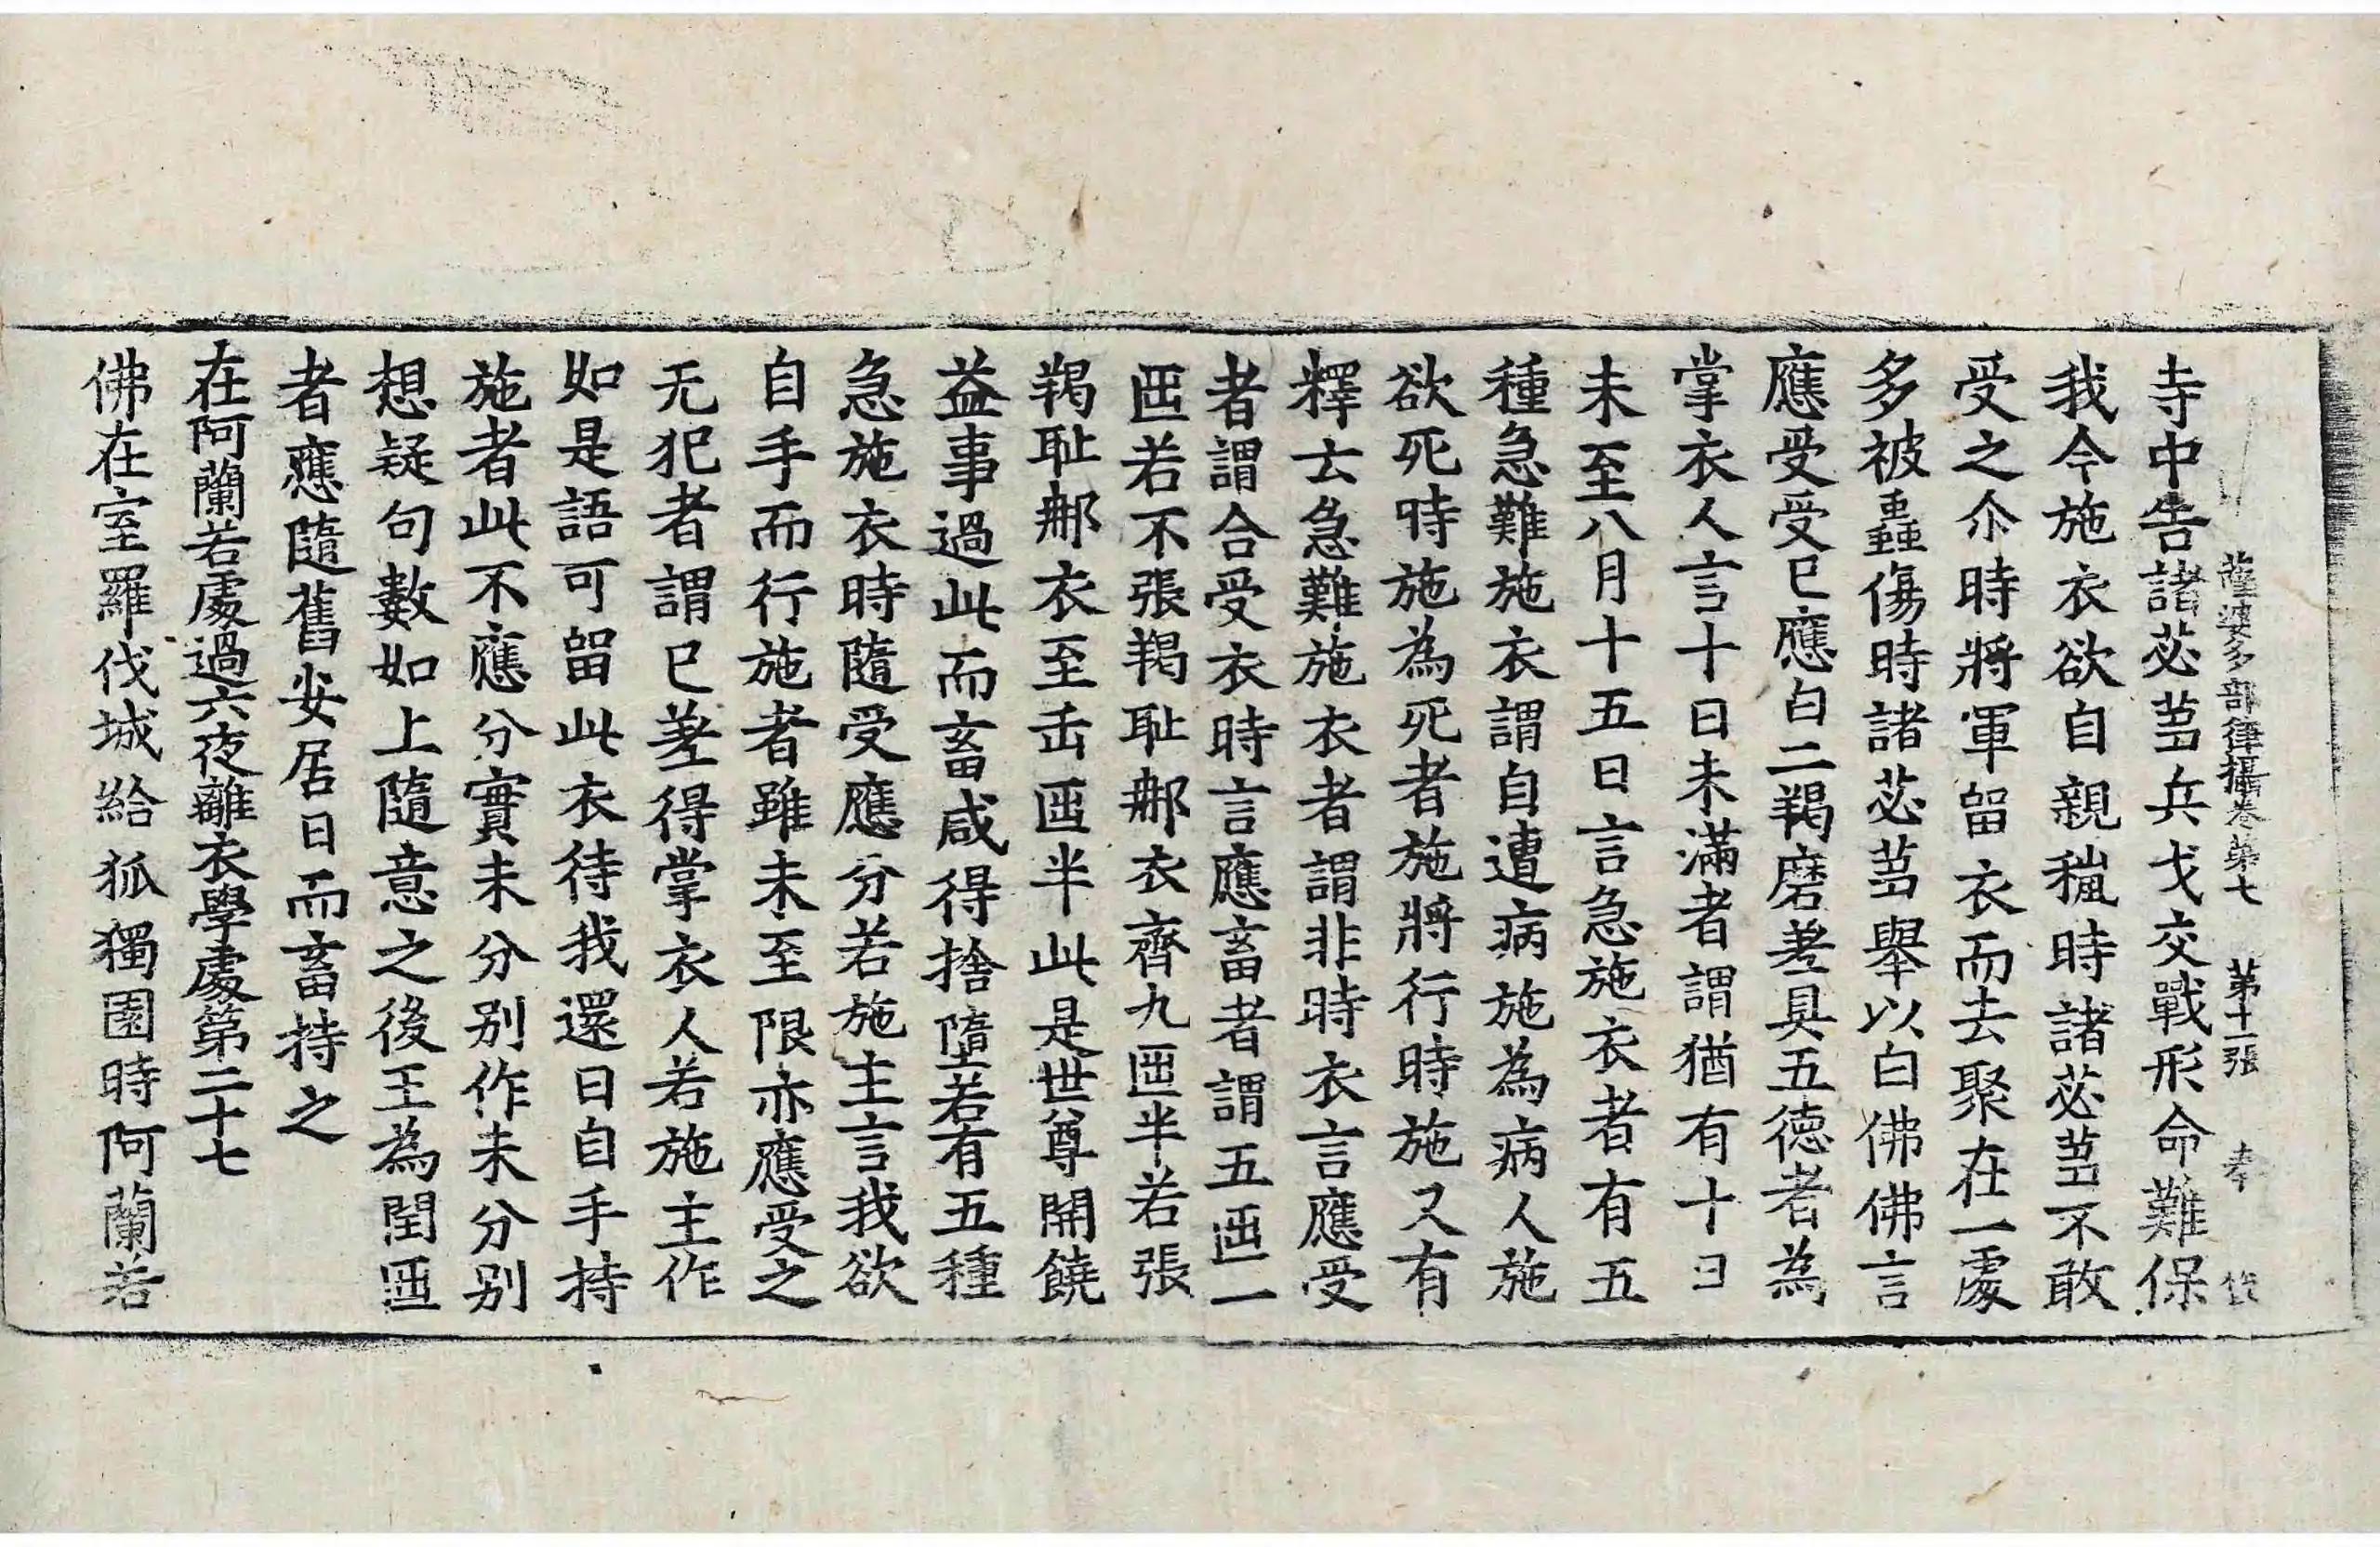 薩婆多部律攝卷第七 第十二張 奉
寺中告諸苾芻兵戈交戰形命難保
我今施衣欲自親稱時諸苾芻不敢
受之尒時將軍留衣而去聚在一處
多被蟲傷時諸苾芻舉以白佛佛言
應受受已應白二羯磨差具五徳者為
掌衣人言十日未滿者謂猶有十日
未至八月十五日言急施衣者有五
種急難施衣謂自遭病施為病人施
欲死時施為死者施將行時施又有
釋去急難施衣者謂非時衣言應受
者謂合受衣時言應畜者謂五迊一
迊若不張羯耻郍衣齊九迊半若張
羯耻郍衣至缶迊半此是世尊開饒
益事過此而畜咸得捨墮若有五種
急施衣時隨受應分若施主言我欲
自手而行施者雖未至限亦應受之
无犯者謂已差得掌衣人若施主作
如是語可留此衣待我還日自手持
施者此不應分實未分別作未分別
想疑句數如上隨意之後王為閏迊
者應隨舊安居日而畜持之
在阿蘭若處過六夜離衣學處第二十七
佛在室羅伐城給孤獨園時阿蘭若